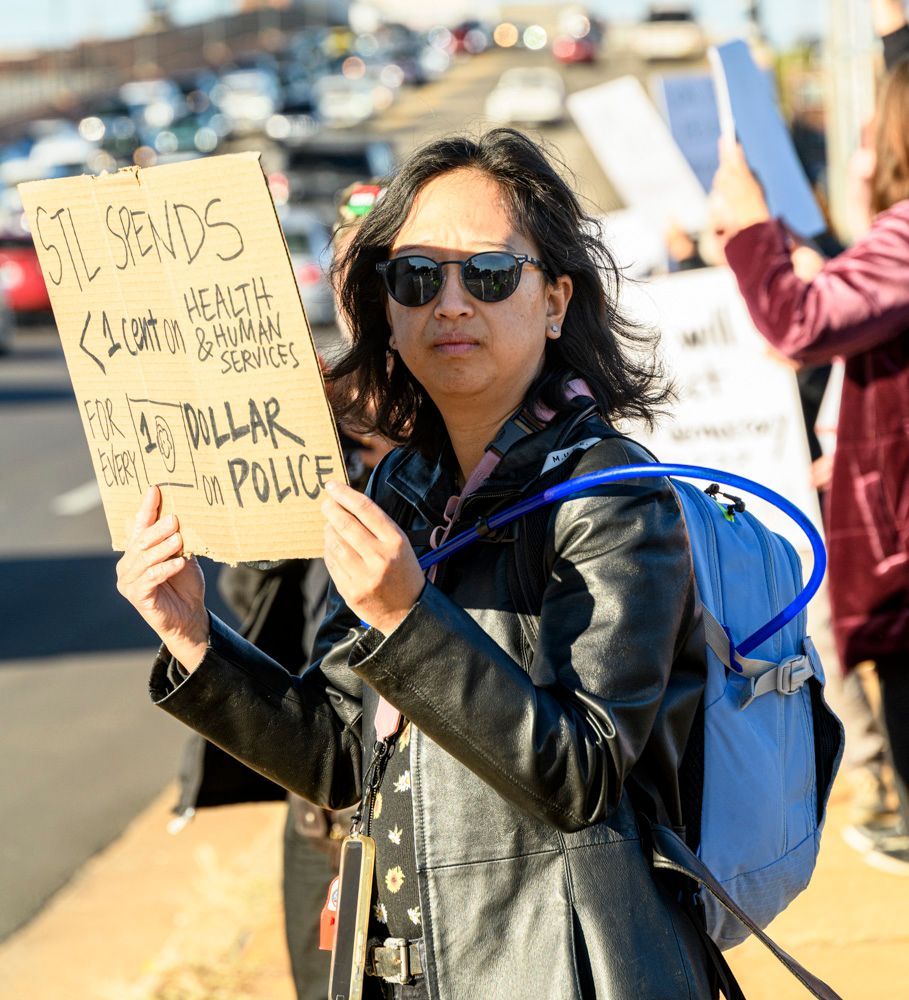 STL SPENDS
<1 cent on
HEALTH
& HUMAN
SERVICES
FOR
EVERY
1
DOLLAR
on POLICE
M.U
will